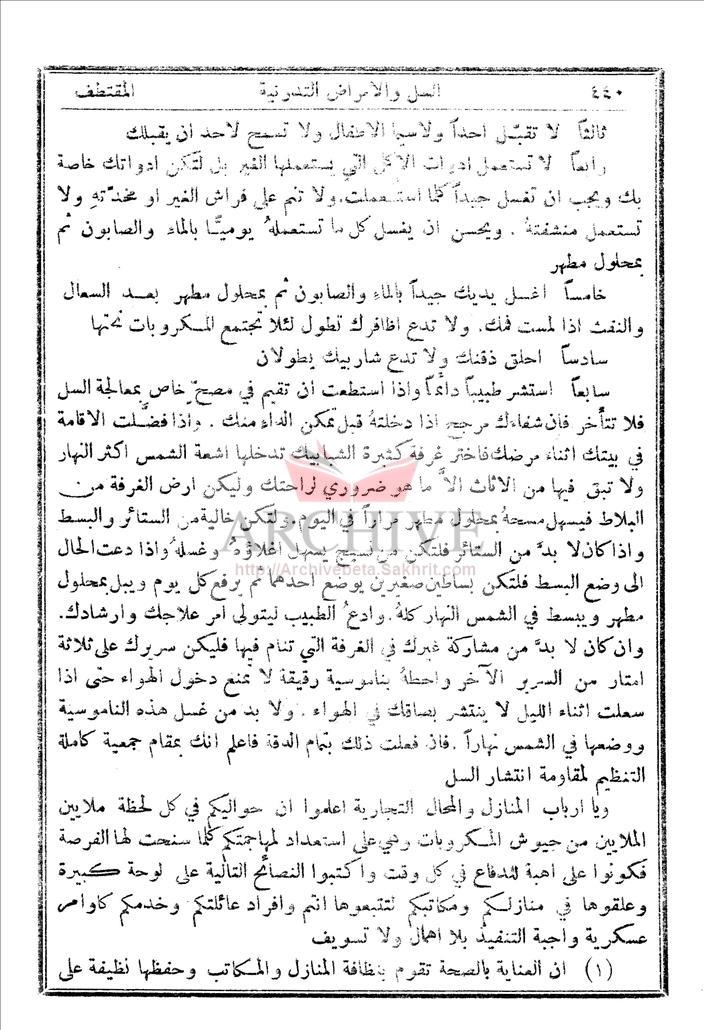 ٤٤٠ السل والامراض التدرنية المقتطف
ثالثاً لا تقبّل احداً ولاسيما الاطفال ولا تسمح لاحد ان يقبلك
رابعاً لا تستعمل ادوات الاكل التي يستعملها الغير بل لتكن ادواتك خاصة
بك ويجب ان تغسل جيداً كلما استعملت. ولا تنم على فراش الغير او مخدّتهِ ولا
تستعمل منشفتهُ . ويحسن ان يغسل كل ما تستعملهُ يوميّاً بالماء والصابون ثم
بمحلول مطهر
خامساً اغسل يديك جيداً بالماء والصابون ثم بمحلول مطهر بعد السعال
والنفث اذا لمست فمك. ولا تدع اظافرك تطول لئلا تجتمع المكروبات تحتها
سادساً احلق ذقنك ولا تدع شاربيك يطولان
سابعاً استشر طبيباً دائماً واذا استطعت ان تقيم في مصحّ خاص بمعالجة السل
فلا تتأخر فان شفاءك مرجح اذا دخلتهُ قبل تمكن الداء منك . واذا فضّلت الاقامة
في بيتك اثناء مرضك فاختر غرفة كثيرة الشبابيك تدخلها اشعة الشمس اكثر النهار
ولا تبق فيها من الاثاث الاَّ ما هو ضروري لراحتك وليكن ارض الغرفة من
البلاط فيسهل مسحهُ بمحلول مطهر مراراً في اليوم. ولتكن خالية من الستائر والبسط
واذا كان لا بدَّ من الستائر فلتكن من نسيج يسهل اغلاؤهُ وغسلهُ واذا دعت الحال
الى وضع البسط فلتكن بساطين صغيرين يوضع احدهما ثم يرفع كل يوم ويبل بمحلول
مطهر ويبسط في الشمس النهار كلهُ. وادعُ الطبيب ليتولى امر علاجك وارشادك.
وان كان لا بدَّ من مشاركة غيرك في الغرفة التي تنام فيها فليكن سريرك على ثلاثة
امتار من السرير الآخر واحطهُ بناموسية رقيقة لا تمنع دخول الهواء حتى اذا
سعلت اثناء الليل لا ينتشر بصاقك في الهواء . ولا بد من غسل هذه الناموسية
ووضعها في الشمس نهاراً . فان فعلت ذلك بتمام الدقة فاعلم انك بمقام جمعية كاملة
التنظيم لمقاومة انتشار السل
ويا ارباب المنازل والمحال التجارية اعلموا ان حواليكم في كل لحظة ملايين
الملايين من جيوش المكروبات وهي على استعداد لمهاجمتكم كلما سنحت لها الفرصة
فكونوا على اهبة للدفاع في كل وقت واكتبوا النصائح التالية على لوحة كبيرة
وعلقوها في منازلكم ومكاتبكم لتتبعوها انتم وافراد عائلتكم وخدمكم كاوامر
عسكرية واجبة التنفيذ بلا اهمال ولا تسويف
(١) ان العناية بالصحة تقوم بنظافة المنازل والمكاتب وحفظها نظيفة على
ARCHIVE
http://Archivebeta.Sakhrit.com